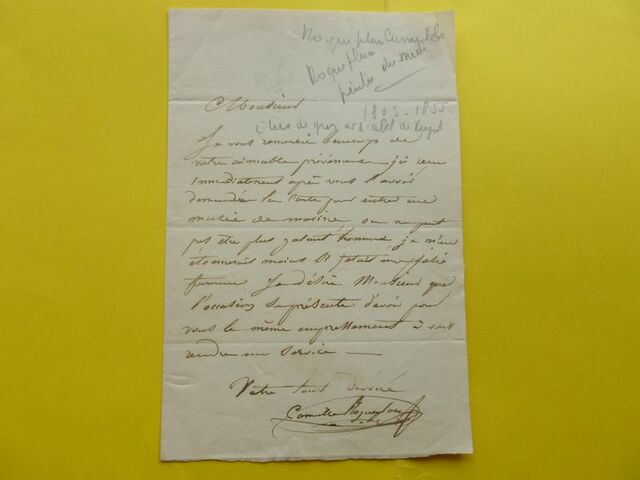 Roqueplan Camille
Roqueplan
peintre du midi
1803-1855
élève de gros et d'abel de Pujol
Monsieur
Je vous remercie beaucoup de
votre aimable prévenance, j'ai reçu
immédiatement après vous l'avoir
demandée la carte pour entrer au
musée de marine on ne peut
pas être plus galant homme, je m'en
étonnerais moins si j'étais une jolie
femme. Je désire Monsieur que
l'occasion se présente d'avoir pour
vous le même empressement à vous
rendre un service —
Votre tout dévoué
Camille Roqueplan